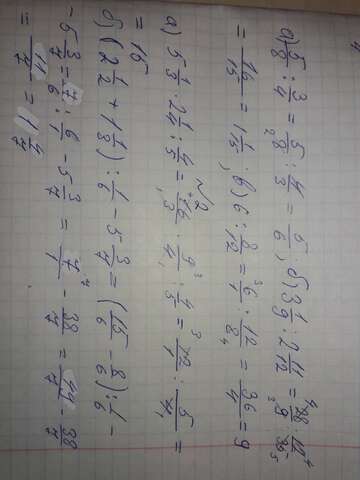 а) 5/8 : 3/4 = 5/8 : 4/3 = 5/6; б) 3 1/9 : 2 11/12 = 28/9 : 12/35
= 16/15 = 1 1/15; в) 6 : 8/12 = 6/1 : 12/8 = 36/4 = 9
а) 5 1/3 · 2 1/4 : 4/5 = 16/3 · 9/4 : 4/5 = 12/1 : 5/4 =
= 15
б) (2 1/2 + 1 1/8) : 1/6 - 5 3/7 = (15/6 - 8/6) : 1/6 -
- 5 3/7 = 7/6 : 6/1 - 5 3/7 = 7/1 - 38/7 = 49/7 - 38/7
= 11/7 = 1 4/7